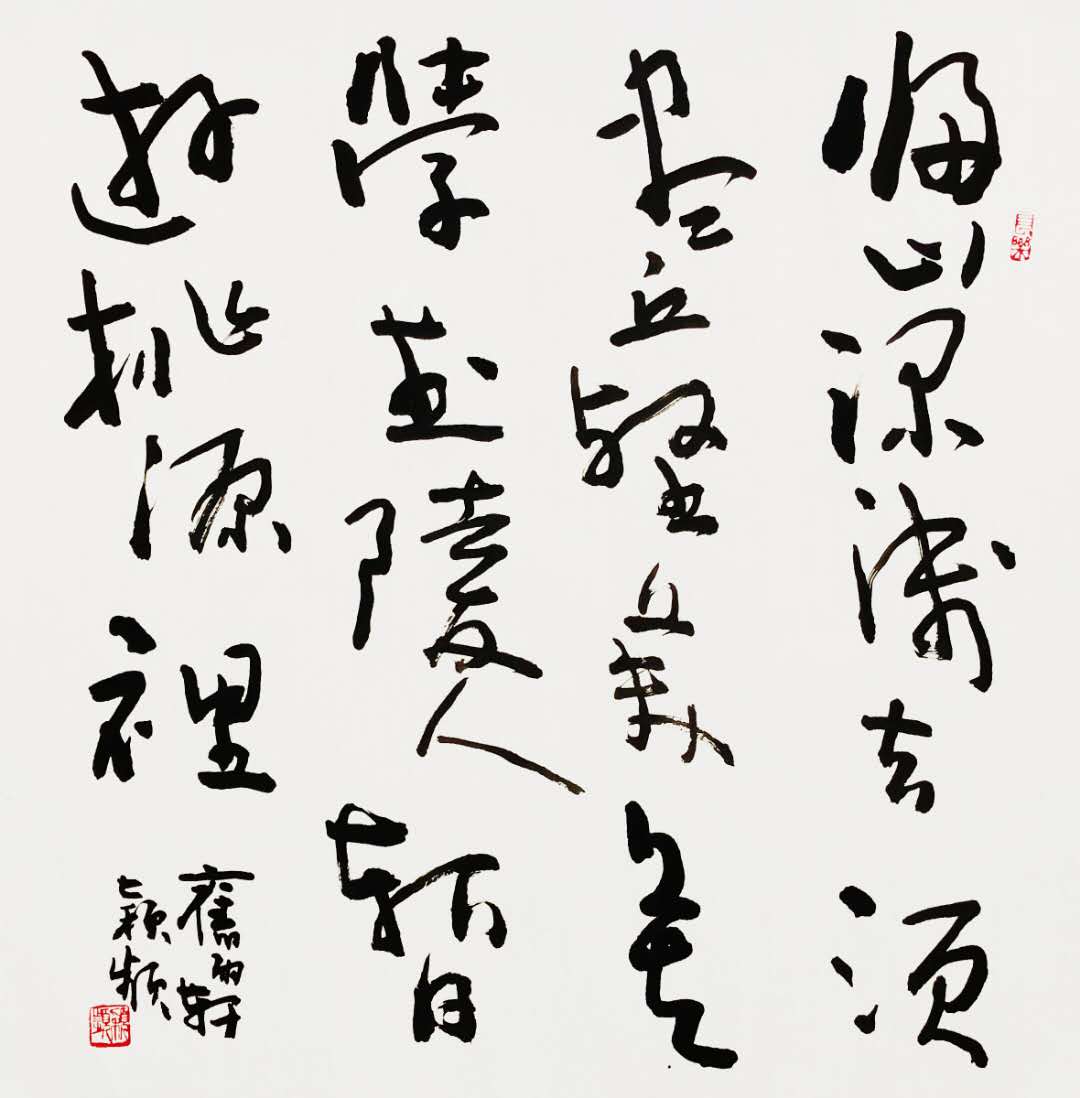 歸山深淺去須
盡丘壑美莫
學武陵人暫
遊桃源裡
舊雨軒